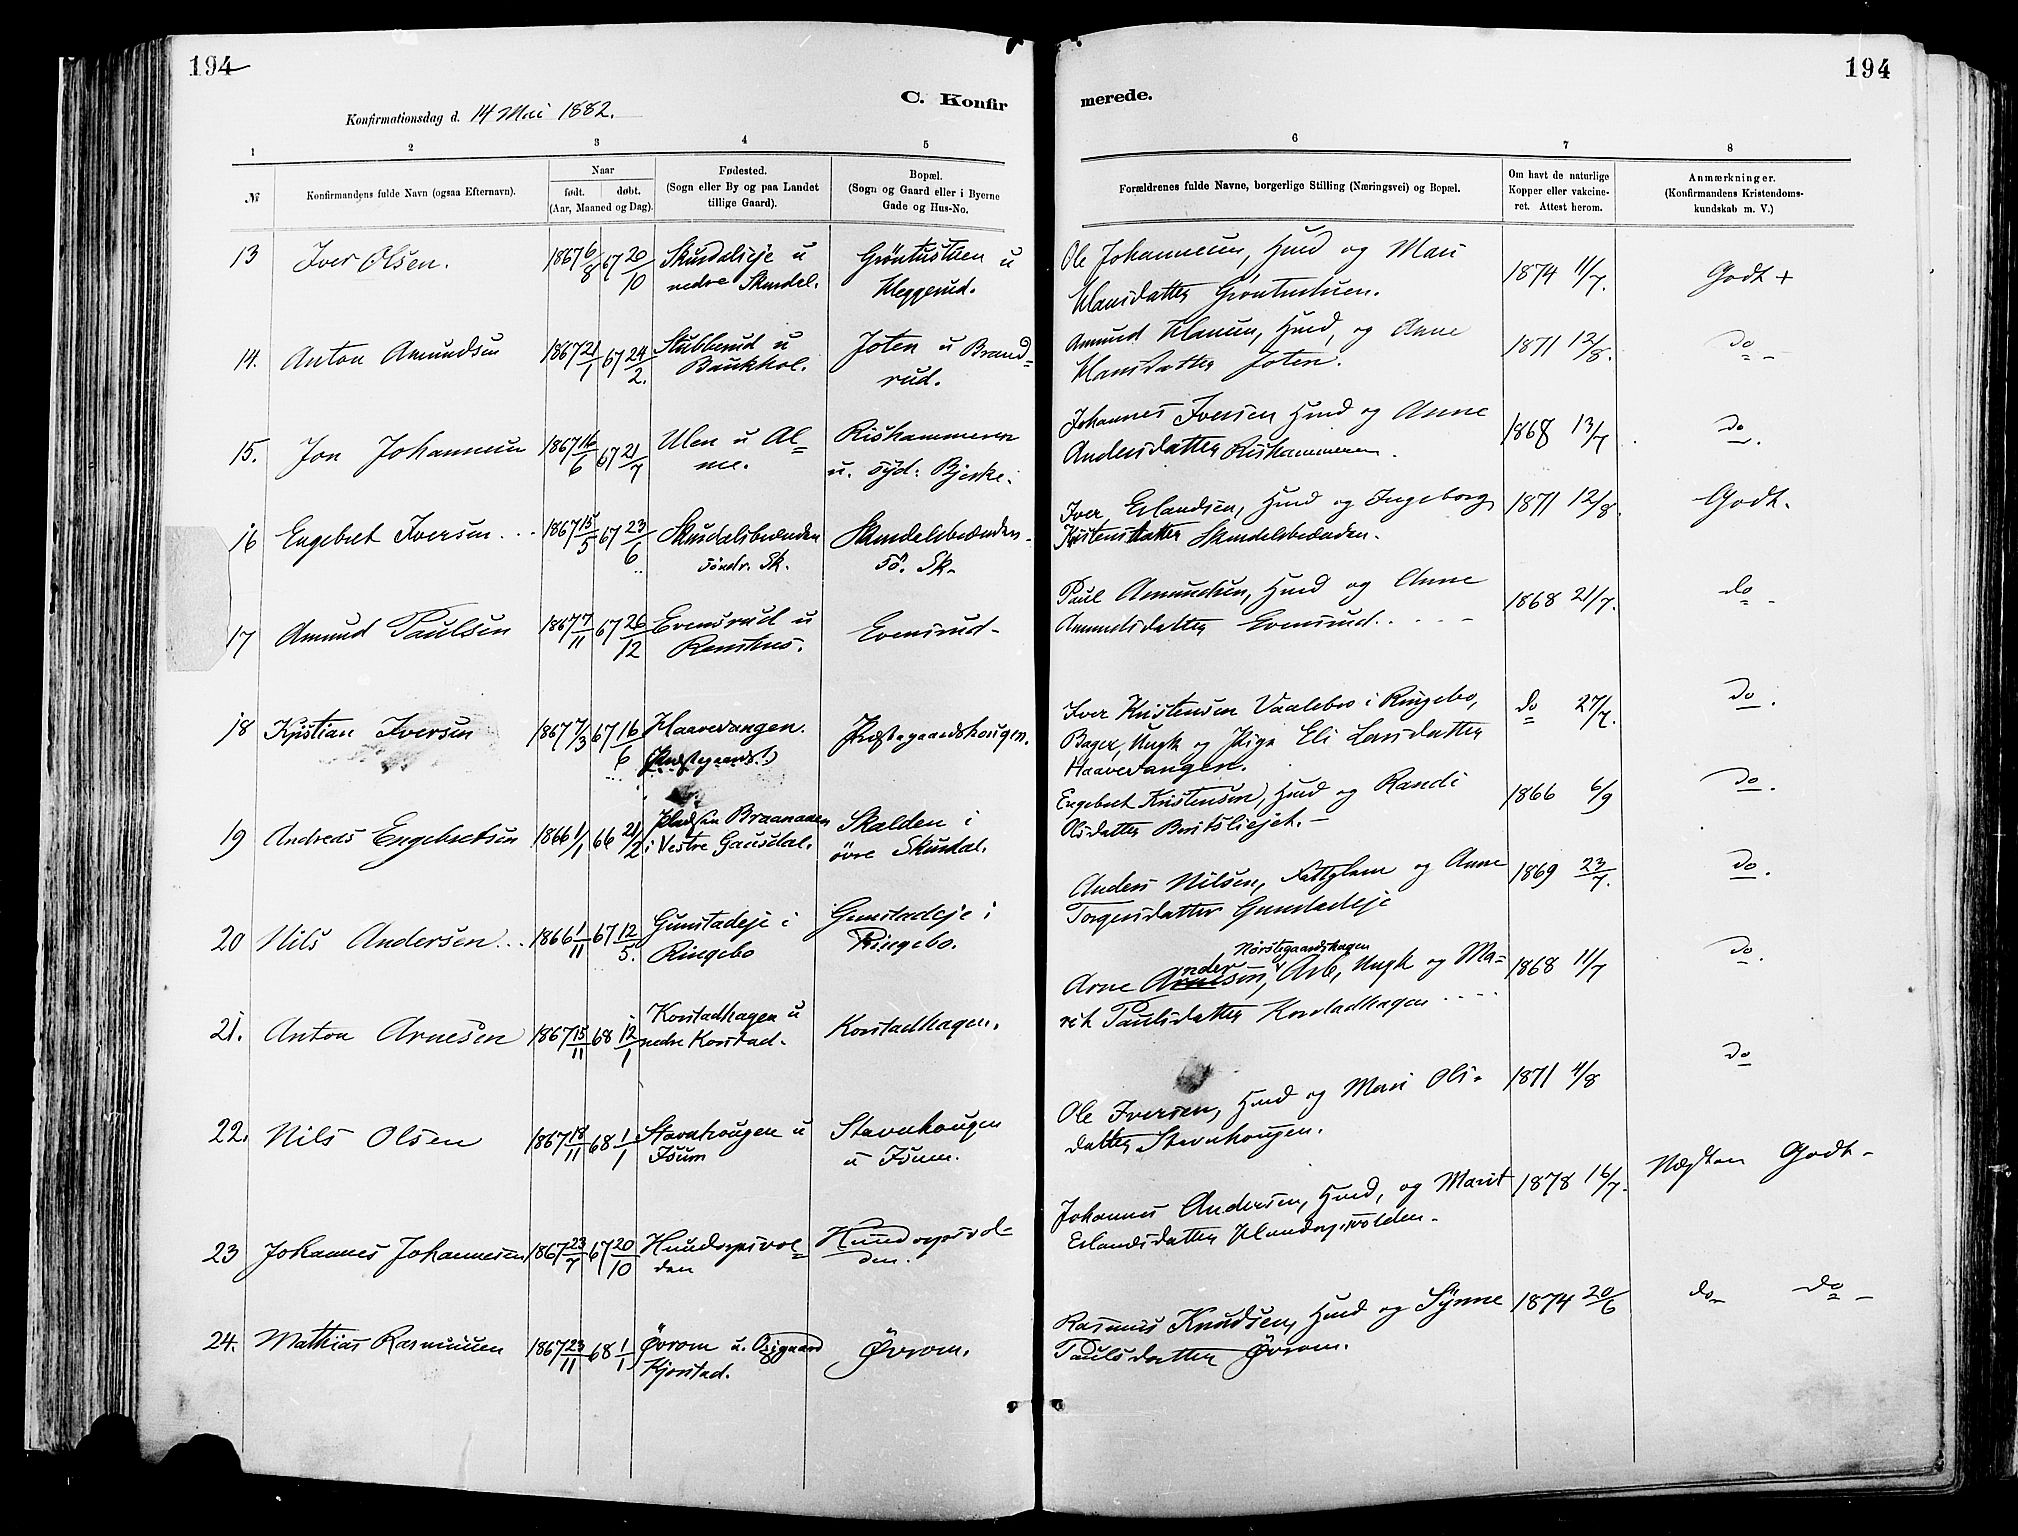 194
C. Konfir
Konfirmationsdag d. 14 Mai 1882.
1 2 3 4 5
№
Konfirmandens fulde Navn (ogsaa Efternavn).
Naar
født. døbt.
(Aar, Maaned og Dag).
Fødested.
(Sogn eller By og paa Landet
tillige Gaard).
Bopæl.
(Sogn og Gaard eller i Byerne
Gade og Hus-No.
13 Iver Olsen. 1867 6/8 67 20/10 Skurdalseje u Gröntustuen u
nedre Skurdal.
14. Anton Amundsen 1867 21/1 67 24/2. Stubberud u Joten u Brand=
Baukhol. rud.
15. Jon Johannesen 1867 16/6 67 21/7 Ulen u Al= Rishammeren
me. u. syd: Bjerke.
16 Engebret Iversen... 1867 15/5 67 23/6 Skurdalsbrænden Skurdalsbrænden
söndr. Sk. sö. Sk.
17 Amund Paulsen 1867 7/11 67 26/12 Evensrud u Evensrud
18 Kristian Iversen 1867 7/3 67 16/6 Haavevangen. Præstegaardshougen.
(Præstegaards.)
19 Andreas Engebretsen 1866 1/1 66 21/2 Pladsen Braanaaen Skalden i
i Vestre Gausdal. övre Skurdal.
20 Nils Andersen... 1866 1/11 67 12/5. Gunstadeje i Gunstadeje i
Ringebo Ringebo.
21. Anton Arnesen 1867 15/11 68 12/1 Korstadhagen u Korstadhagen.
nedre Korstad.
22. Nils Olsen 1867 18/11 68 1/1 Stavnhougen u Stavnhougen
Isum u Isum.
23 Johannes Johannesen 1867 23/7 67 20/10 Hundorpsvol= Hundorpsvol=
den den.
24. Mathias Rasmussen 1867 23/11 68 1/1 Øvrom u. Øvrom.
Kjorstad.
194
merede.
6 7 8
Forældrenes fulde Navne, borgerlige Stilling (Næringsvei) og Bopæl.
Om havt de naturlige
Kopper eller vakcine-
ret. Attest herom.
Anmærkninger.
(Konfirmandens Kristendoms-
kundskab m. V.)
Ole Johannesen, Husd og Mari 1874 11/7. Godt +
Hansdatter Gröntustuen.
Amund Hansen, Husd, og Anne 1871 12/8. do
Hansdatter Joten.
Johannes Iversen Husd og Anne 1868 13/7 do
Andersdatter Rishammeren.
Iver Erlandsen, Husd og Ingeborg 1871 12/8. Godt.
Kristensdatter Skurdalsbrænden.
Paul Amundsen, Husd og Anne 1868 21/7. do
Amundsdatter Evensrud.....
Iver Kristensen Vaalebro i Ringebo, do 27/7. do.
Bager, Ungk og Pige Eli Larsdatter
Haavevangen.
Engebret Kristensen, Husd og Randi 1866 6/9 do.
Olsdatter
Anders Nilsen, og Anne 1869 23/7. do.
Torgersdatter Gunstadeje
Nörstegaardshagen
Arne Andersen, Arb, Ungk og Ma= 1868 11/7 do
rit Paulsdatter Korstadhagen....
Ole Iversen, Husd og Mari Ols= 1871 11/8 do
datter Stavnhougen.
Johannes Andersen, Husd, og Marit 1878 16/7. Næsten Godt.
Erlandsdatter Hundorpsvolden.
Rasmus Knudsen, Husd og Synne 1874 20/6 do do
Paulsdatter Øvrom.